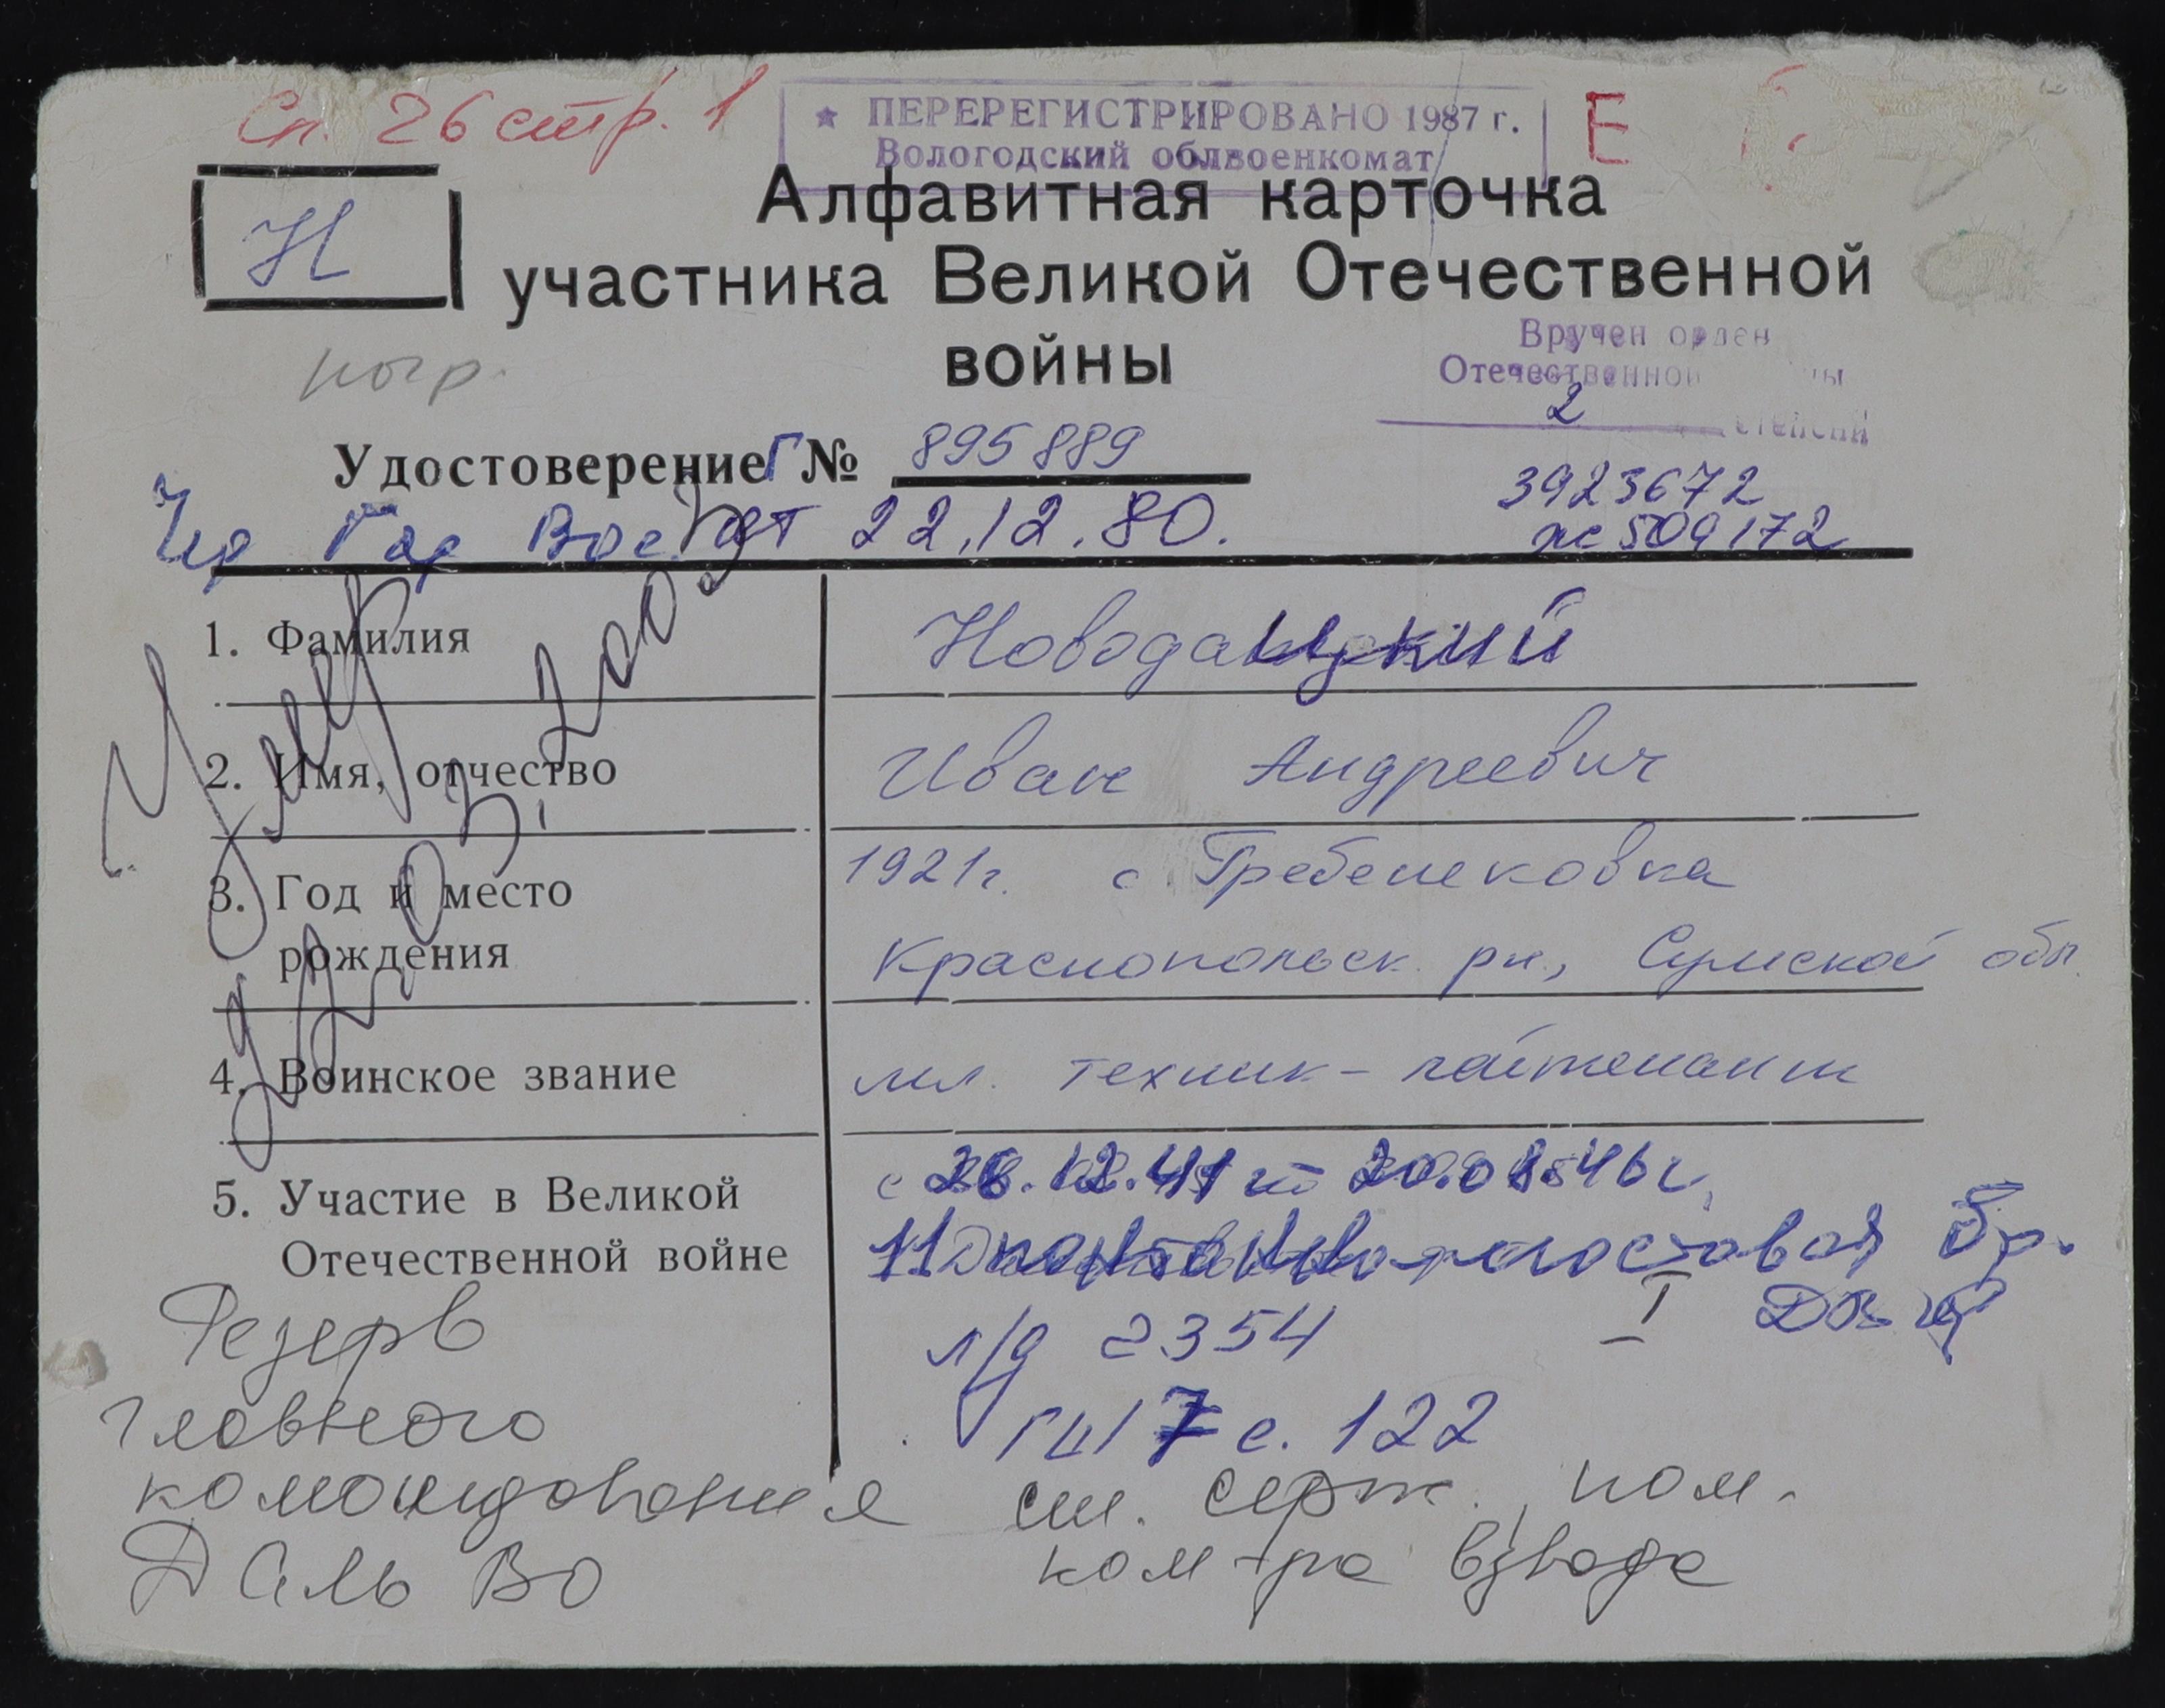 Сп. 26 стр. 1
★ ПЕРЕРЕГИСТРИРОВАНО 1987 г.
Вологодский облвоенкомат
Е
Н
Алфавитная карточка
участника Великой Отечественной
войны
Вручен орден
Отечественной
2 степени
Удостоверение Г № 895889
3923672
Чер Гор Вое от 22.12.80.
ж 509172
1. Фамилия
Новодацкий
2. Имя, отчество
Иван Андреевич
3. Год и место
рождения
1921г. с Гребениковка
Краснопольск рн, Сумской обл.
4. Воинское звание
мл. техник-лейтенант
Умер
5. Участие в Великой
Отечественной войне
с 26.12.41 по 20.08.46г.
11 понтонно-мостовая бр.
I
л/д 2354
ГШ 7 с. 122
Резерв
главного
командования
Даль ВО
см. серж., пом.
ком-ра взвода